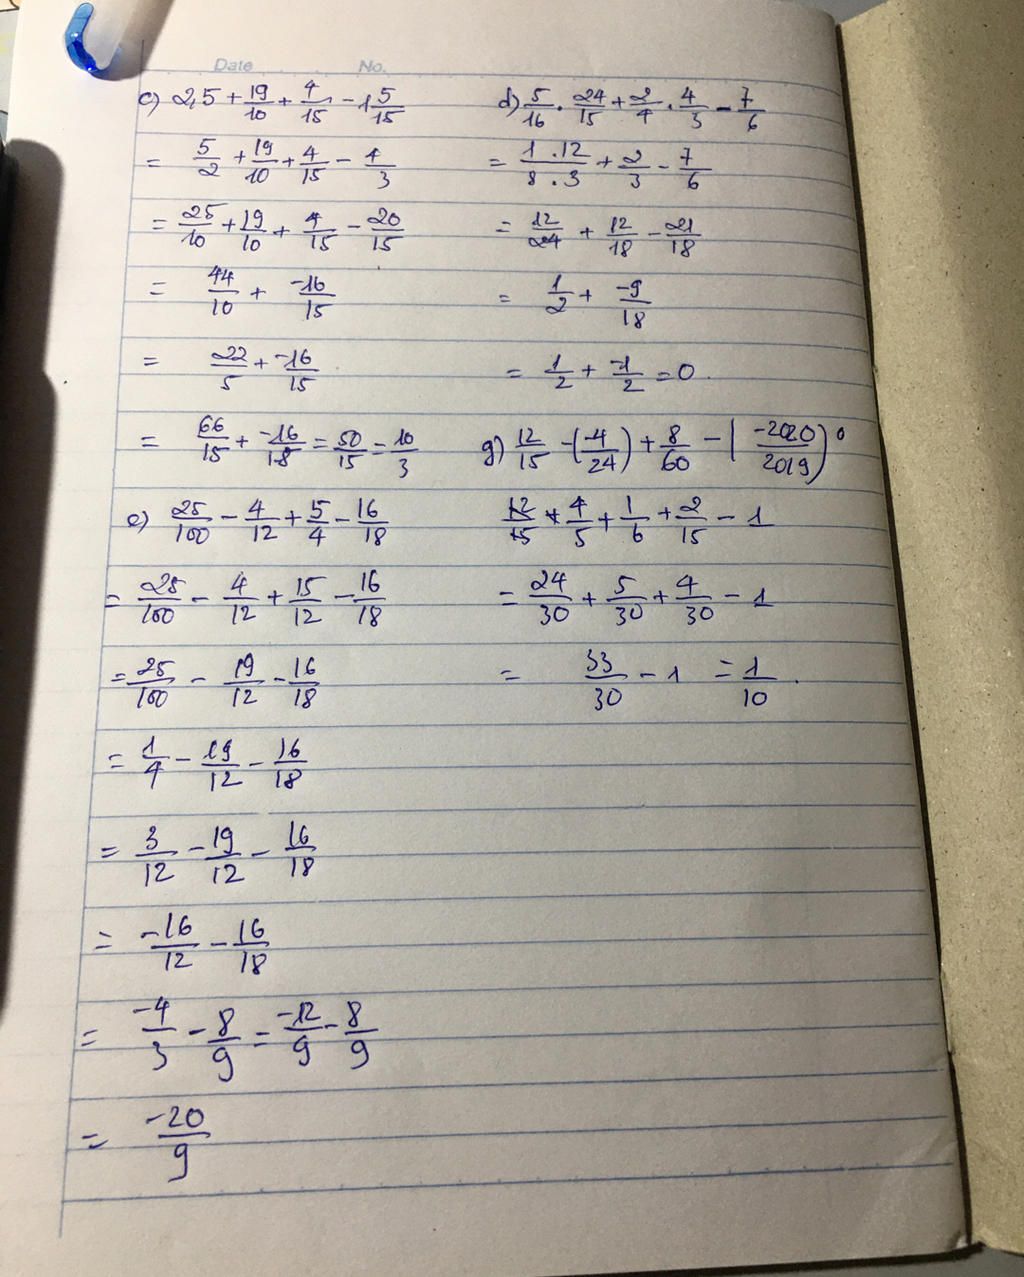 Date No.
c) 2,5 + 19/10 + 4/15 - 1 5/15
= 5/2 + 19/10 + 4/15 - 4/3
= 25/10 + 19/10 + 4/15 - 20/15
= 44/10 + -16/15
= 22/5 + -16/15
= 66/15 + -16/15 = 50/15 = 10/3
e) 25/100 - 4/12 + 5/4 - 16/18
= 25/100 - 4/12 + 15/12 - 16/18
= 25/100 - 19/12 - 16/18
= 1/4 - 19/12 - 16/18
= 3/12 - 19/12 - 16/18
= -16/12 - 16/18
= -4/3 - 8/9 = -12/9 - 8/9
= -20/9
d) 5/16 . 24/15 + 2/4 . 4/3 - 7/6
= 1 . 12/8 . 3 + 2/3 - 7/6
= 12/24 + 12/18 - 21/18
= 1/2 + -9/18
= 1/2 + -1/2 = 0.
g) 12/15 - (-4/24) + 8/60 - (-2020/2019)⁰
4/5 + 1/6 + 2/15 - 1
= 24/30 + 5/30 + 4/30 - 1
= 33/30 - 1 = 1/10.